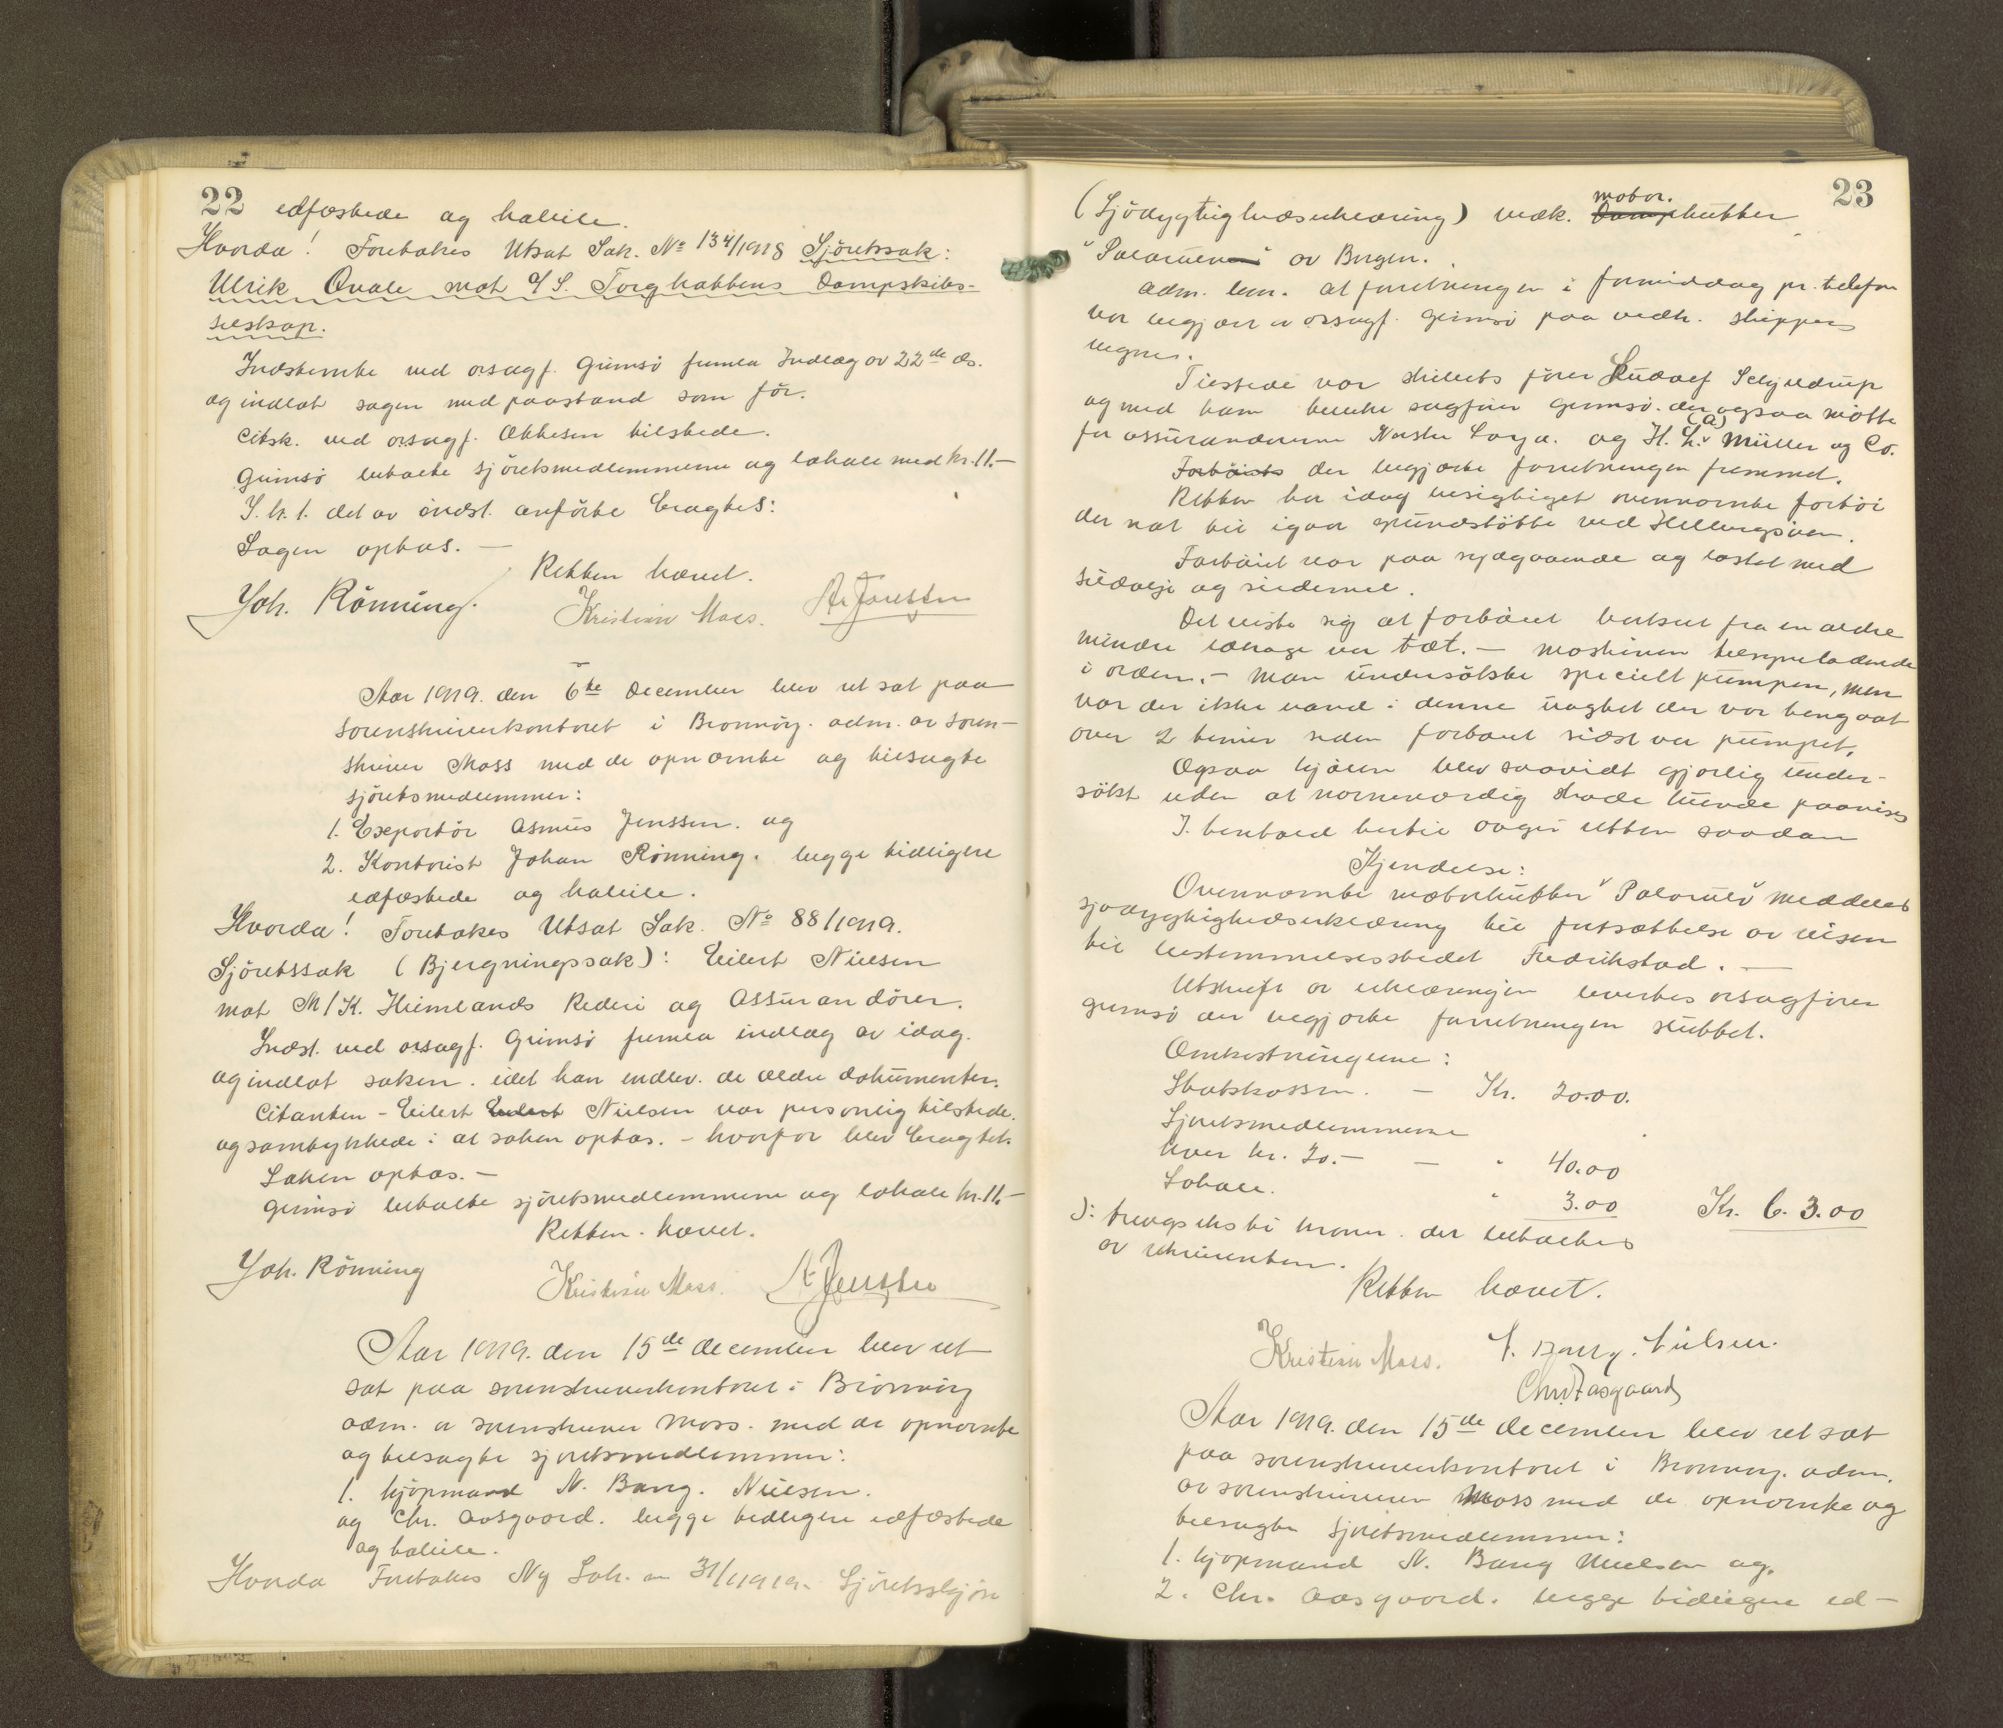 22 edfæstede og habile.
Hvorda! Foretakes Utsat Sak. No 134/1918 Sjöretssak:
Ulrik Qvale mot A/S. Torghattens Dampskibs-
selskap.
Indstevnte ved orsagf. Grimsö fremla Indlæg av 22de ds.
og indlot sagen med paastand som för.
Citsk. ved orsagf. Akkesen tilstede.
Grimsö betalte sjöretsmedlemmerne og lokale med kr. 11.-
S. h. t. det av indst. anförte eragtes:
Sagen optas. —
Retten hævet.
Joh. Rönning. Kristian Moss. As Jenssen
Aar 1919. den 6te December blev ret sat paa
sorenskriverkontoret i Bronnöy. adm. av soren-
skriver Moss med de opnævnte og tilsagte
sjöretsmedlemmer:
1. Exportör Asmus Jenssen. og
2. Kontorist Johan Rönning. begge tidligere
edfæstede og habile.
Hvorda! Foretakes Utsat Sak. No 88/1919.
Sjöretssak (Bjergningssak): Eilert Nielsen
mot M/K. Heimlands Rederi og Assurandörer.
Indst. ved orsagf. Grimsö fremla indlæg av idag.
og indlot saken. idet han endlev. de ældre dokumenter.
Citanten - Eilert Eilert Nielsen var personlig tilstede.
og samtykkede i at saken optas. - hvorfor blev eragtet:
Saken optas. —
Grimsö betalte sjöretsmedlemmerne og lokale kr. 11.-
Retten. hævet.
Joh. Rönning Kristian Moss. As Jenssen
Aar 1919. den 15de december blev ret
sat paa sorenskriverkontoret i Brönnöy
adm. av sorenskriver Moss. med de opnævnte
og tilsagte sjöretsmedlemmer:
1. kjöpmand N. Bang. Nielsen.
og Chr. Aasgaard. begge tidligere edfæstede
og habile.
Hvorda Foretakes Ny Sak. an 31/1919. Sjöretsskjön
23
(Sjödygtighedserklæring) vedk. Damp motor. kutter
"Palarulen" av Bergen.
Adm. bem. at forretningen i formiddag pr. telefon
var begjæret av orsagf. Grimsö paa vedk. skippers
vegne.
Tilstede var skibets förer Ludolf Schjeldrup
og med ham henke sagförer Grimsö. der ogsaa mötte
for assurandörerne Norske Loyd. og H. L. (a) Müller og Co.
Fartöiets der begjærte forretningen fremmet.
Retten har idag besigtiget ovennævnte fartöi
der nat til igaar grundstötte ved Hellingsöen.
Fartöiet var paa sydgaaende og lastet med
sildolje og sildemel.
Det viste sig at fartöiet bortset fra en ældre
mindre lækage var tæt. — Maskinen tilsyneladende
i orden. — Man undersökte specielt pumpen, men
var der ikke vand i denne uagtet der var hengaat
over 2 timer siden fartöiet sidst var pumpet.
Ogsaa kjölen blev saavidt gjörlig under-
sökt uden at nævneværdig skade kunde paavises
I henhold hertil avgir retten saadan
Kjendelse:
Ovennævnte motorkutter "Palarul" meddeles
sjödygtighedserklæring til fortsættelse av reisen
til bestemmelsesstedet Fredrikstad. —
Utskrift av erklæringen levertes orsagförer
Grimsö der begjærte forretningen sluttet.
Omkostningerne:
Statskassen. — Kr. 20.00.
Sjöretsmedlemmerne
hver kr. 20.- — " 40.00
Lokale. " 3.00 Kr. 63.00
ɔ: treogseksti kroner. der betaltes
av rekvirenten.
Retten hævet.
Kristian Moss. N. Bang. Nielsen.
Chr. Aasgaard
Aar 1919. den 15de december blev ret sat
paa sorenskriverkontoret i Bronnöy. adm.
av sorenskriveren Moss med de opnævnte og
tilsagte sjöretsmedlemmer:
1. kjöpmand N. Bang Nielsen og.
2. Chr. Aasgaard. begge tidligere ed-